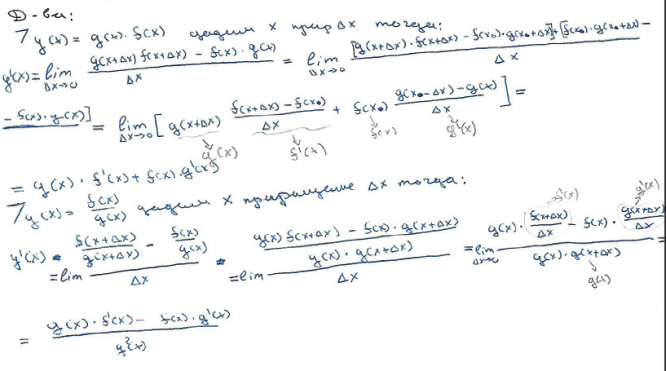 Д-ва:
7 y(x) = g(x)·f(x) дадим x прир Δx тогда:
y'(x) = lim Δx→0 (g(x+Δx) f(x+Δx) − f(x)·g(x)) / Δx = lim Δx→0 ([g(x+Δx)·f(x+Δx) − f(x₀)·g(x₀+Δx)] + [f(x₀)·g(x₀+Δx) −
− f(x)·g(x)]) / Δx = lim Δx→0 [g(x+Δx) (f(x+Δx) − f(x₀)) / Δx + f(x₀) (g(x₀−Δx) − g(x)) / Δx] =
g(x) f'(x) f(x) g'(x)
= g(x)·f'(x) + f(x)·g'(x)
7 y(x) = f(x)/g(x) дадим x приращение Δx тогда:
y'(x) = lim (f(x+Δx)/g(x+Δx) − f(x)/g(x)) / Δx = lim ((g(x) f(x+Δx) − f(x)·g(x+Δx)) / (g(x)·g(x+Δx))) / Δx = lim Δx→0 (g(x)·(f(x+Δx)/Δx) − f(x)·(g(x+Δx)/Δx)) / (g(x)·g(x+Δx)) =
f'(x) g'(x) g(x)
= (g(x)·f'(x) − f(x)·g'(x)) / g²(x)